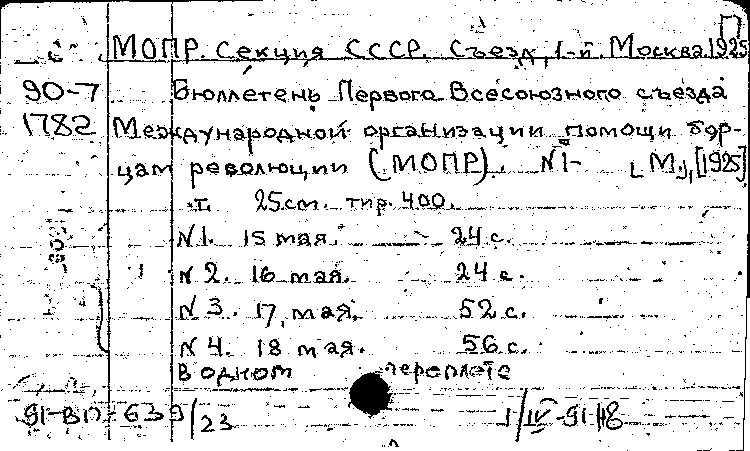 П
МОПР. Секция СССР. Съезд, 1-й. Москва. 1925
90-7 Бюллетень Первого Всесоюзного съезда
1782 Международной организации помощи бор-
цам революции (МОПР). №1- [М.], [1925]
т. 25 см. тир. 400.
№1. 15 мая. 24 с.
№2. 16 мая. 24 с.
№3. 17 мая. 52 с.
№4. 18 мая. 56 с.
В одном переплете
91-ВП-639/23 1/IV-91